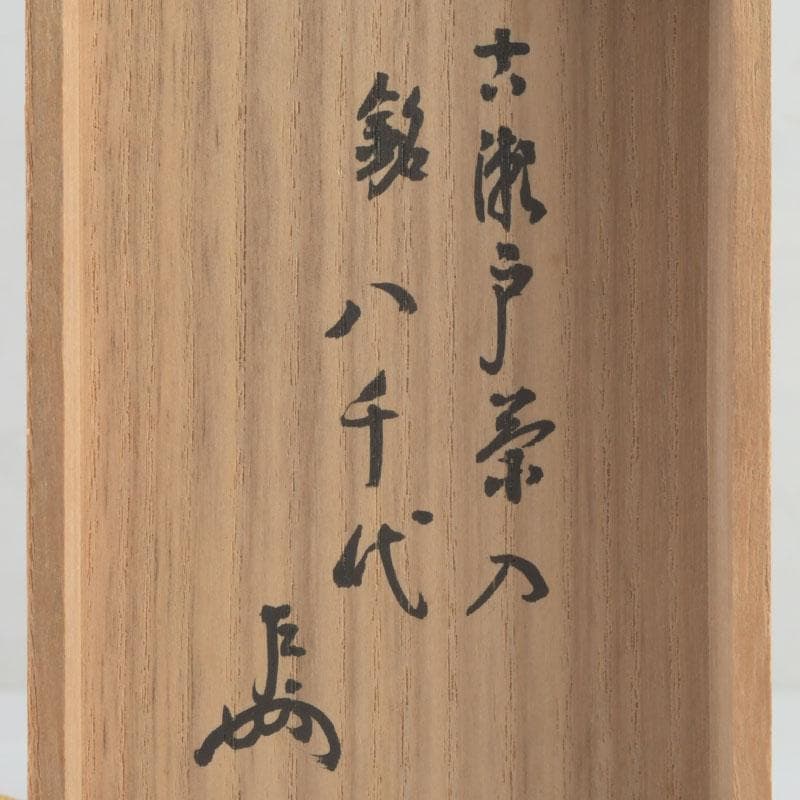 古瀬戸茶入
銘 八千代